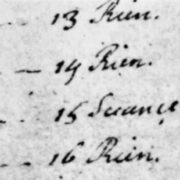 13 Rien.
— 14 Rien.
15 Seance
— 16 Rien.